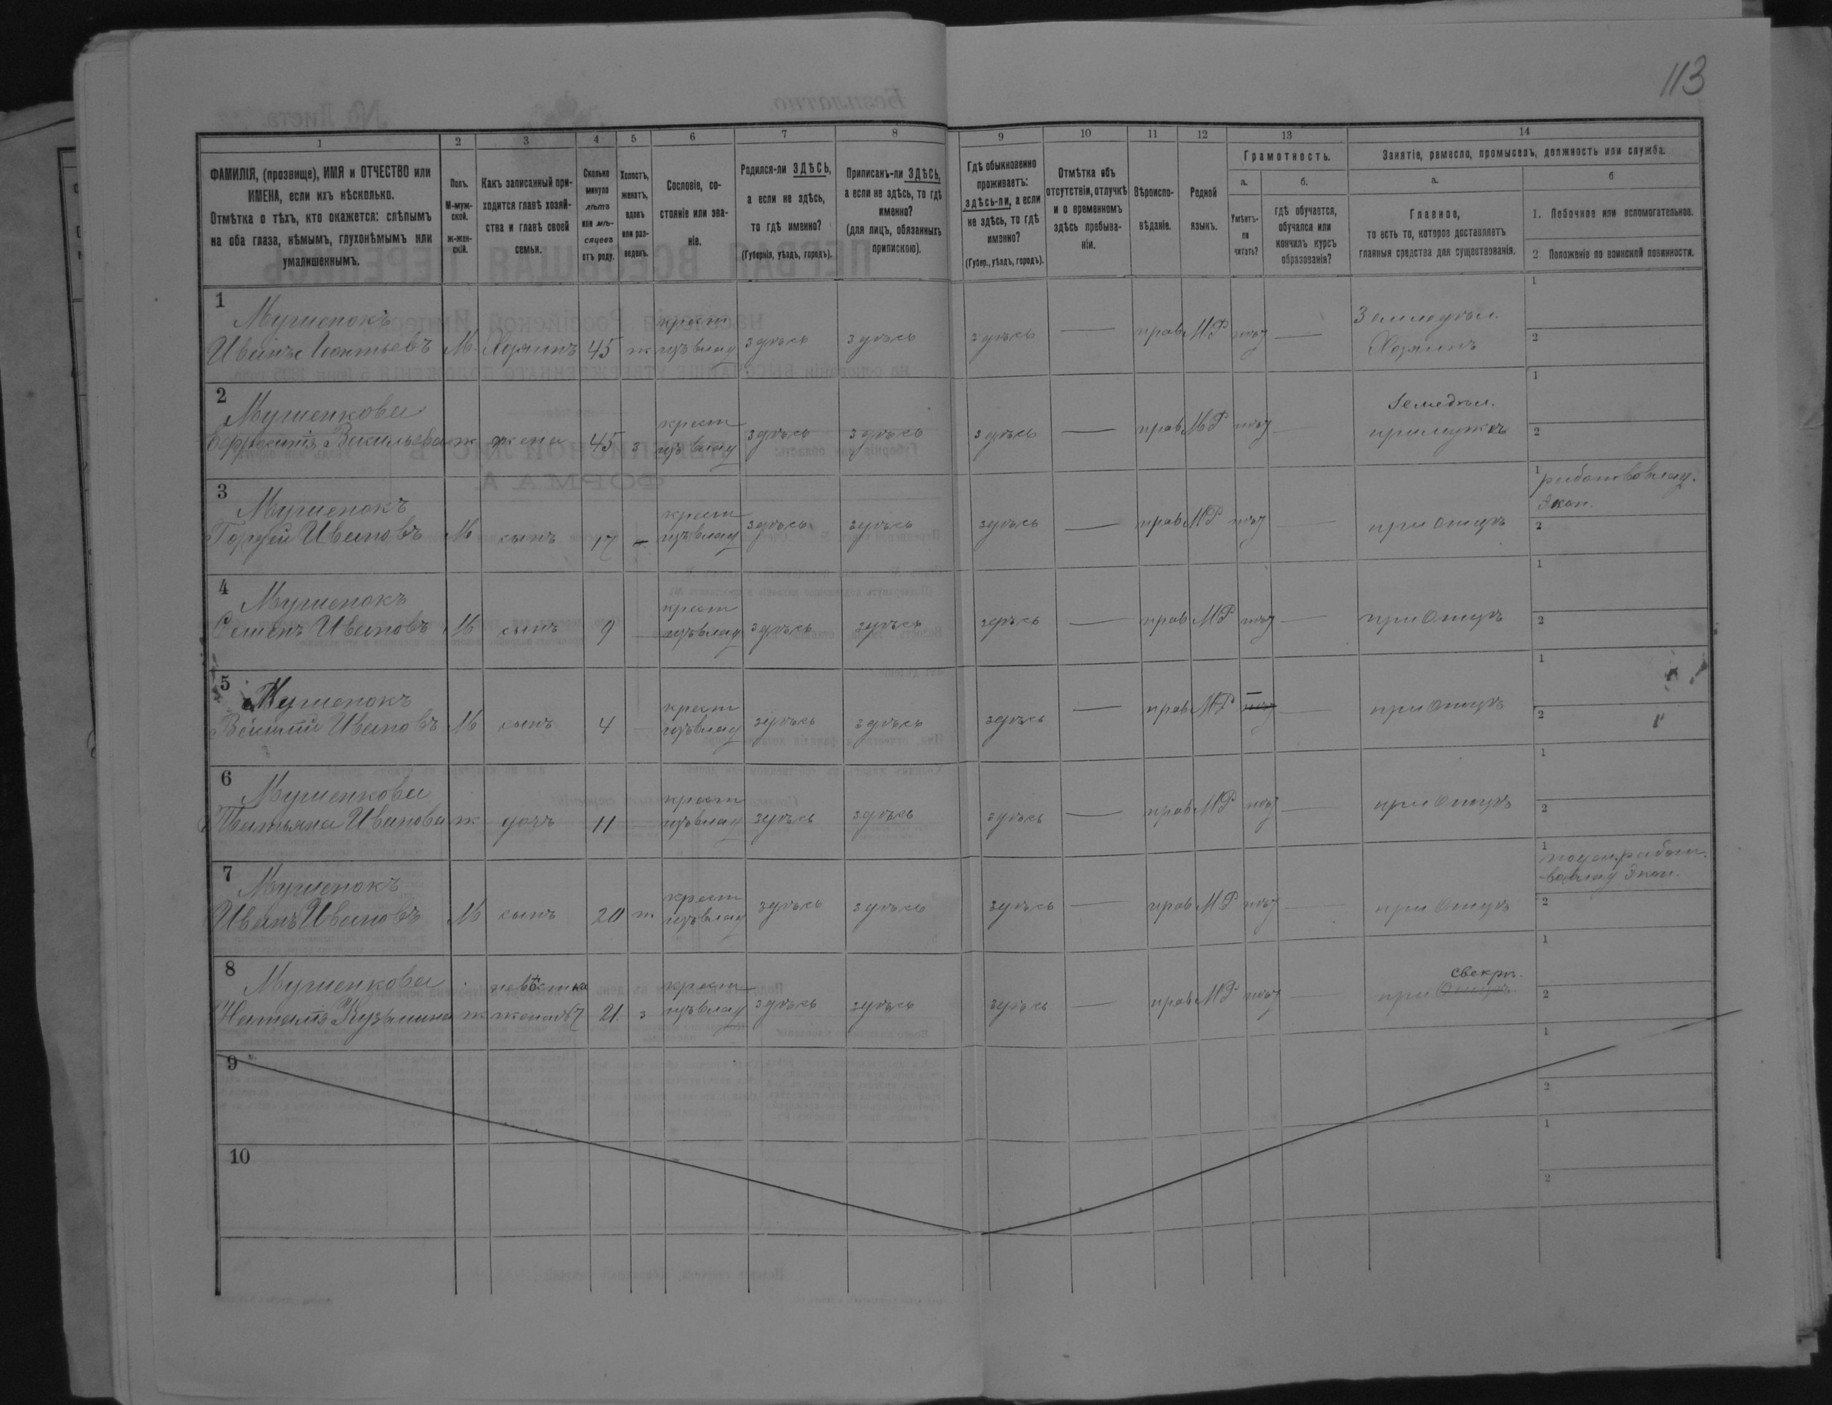 113
1 2 3 4 5 6 7 8 9 10 11 12 13 14
ФАМИЛІЯ, (прозвище), ИМЯ и ОТЧЕСТВО или
ИМЕНА, если ихъ нѣсколько.
Отмѣтка о тѣхъ, кто окажется: слѣпымъ
на оба глаза, нѣмымъ, глухонѣмымъ или
умалишеннымъ.
Полъ.
М-муж-
ской.
ж-жен-
скій.
Какъ записанный при-
ходится главѣ хозяй-
ства и главѣ своей
семьи.
Сколько
минуло
лѣтъ
или мѣ-
сяцевъ
отъ роду.
Холостъ,
женатъ,
вдовъ
или раз-
веденъ.
Сословіе, со-
стояніе или зва-
ніе.
Родился-ли ЗДѢСЬ,
а если не здѣсь,
то гдѣ именно?
(Губернія, уѣздъ, городъ).
Приписанъ-ли ЗДѢСЬ,
а если не здѣсь, то гдѣ
именно?
(для лицъ, обязанныхъ
припискою).
Гдѣ обыкновенно
проживаетъ:
здѣсь-ли, а если
не здѣсь, то гдѣ
именно?
(Губер., уѣздъ, городъ).
Отмѣтка объ
отсутствіи, отлучкѣ
и о временномъ
здѣсь пребыва-
ніи.
Вѣроиспо-
вѣданіе.
Родной
языкъ.
Грамотность.
а.
Умѣетъ-
ли
читать?
б.
гдѣ обучается,
обучался или
кончилъ курсъ
образованія?
Занятіе, ремесло, промыселъ, должность или служба.
а.
Главное,
то есть то, которое доставляетъ
главныя средства для существованія.
б
1. Побочное или вспомогательное.
2. Положеніе по воинской повинности.
1
Мушенокъ
Иванъ Леонтьевъ М Хозяинъ 45 ж
крест
изъ влад здѣсь здѣсь здѣсь — прав МР нѣт —
Земледѣл.
Хозяинъ
1
2
2
Мушенкова
Ефросинія Васильева ж жена 45 з
крест
изъ влад здѣсь здѣсь здѣсь — прав МР нѣт —
Земледѣл.
при мужѣ
1
2
3
Мушенокъ
Гордѣй Ивановъ М сынъ 17
крест
изъ влад здѣсь здѣсь здѣсь — прав МР нѣт —
при отцѣ
1
2
4
Мушенокъ
Семенъ Ивановъ М сынъ 9
крест
изъ влад здѣсь здѣсь здѣсь — прав МР нѣт —
при отцѣ
1
2
5
Мушенокъ
Ивановъ М сынъ 4
крест
изъ влад здѣсь здѣсь здѣсь — прав МР —
при отцѣ
1
2
6
Мушенкова
Татьяна Иванова ж дочь 11
крест
изъ влад здѣсь здѣсь здѣсь — прав МР нѣт —
при отцѣ
1
2
7
Мушенокъ
Иванъ Ивановъ М сынъ 20 ж
крест
изъ влад здѣсь здѣсь здѣсь — прав МР нѣт —
при отцѣ
1
2
8
Мушенкова невѣстка
Наталія Кузьмина ж жена №7 21 з
крест
изъ влад здѣсь здѣсь здѣсь — прав МР нѣт —
свекрѣ
при отцѣ
1
2
9
1
2
10
1
2